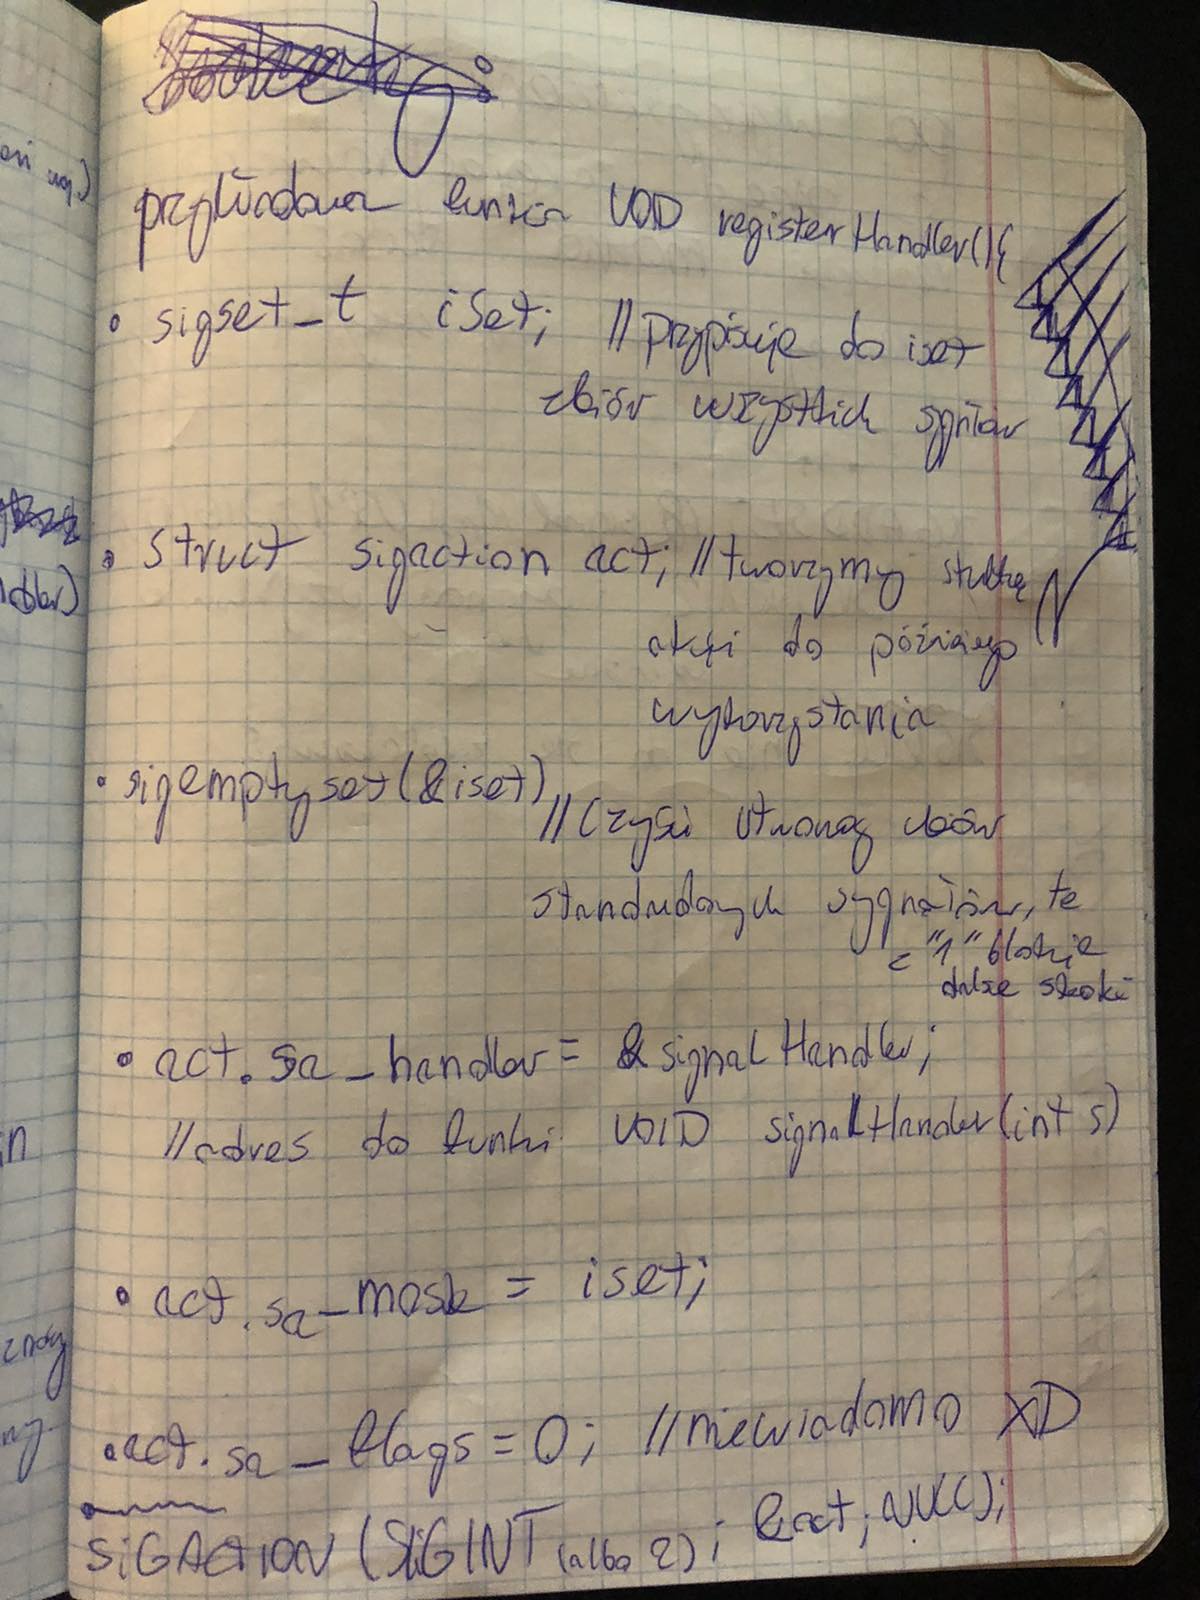 przykładowa funkcja VOID registerHandler(){
• sigset_t iset; // przypisuje do iset
zbiór wszystkich sygnałów
• struct sigaction act; // tworzymy
akcji do późniejszego
wykorzystania
• sigemptyset(&iset)
// czyści utworzony zbiór
standardowych sygnałów, te
z "1" blokuje
dalsze
• act.sa_handler = &signalHandler;
// adres do funkcji VOID signalHandler(int s)
• act.sa_mask = iset;
• act.sa_flags = 0; // niewiadomo XD
SIGACTION (SIGINT (albo 2); &act; NULL);